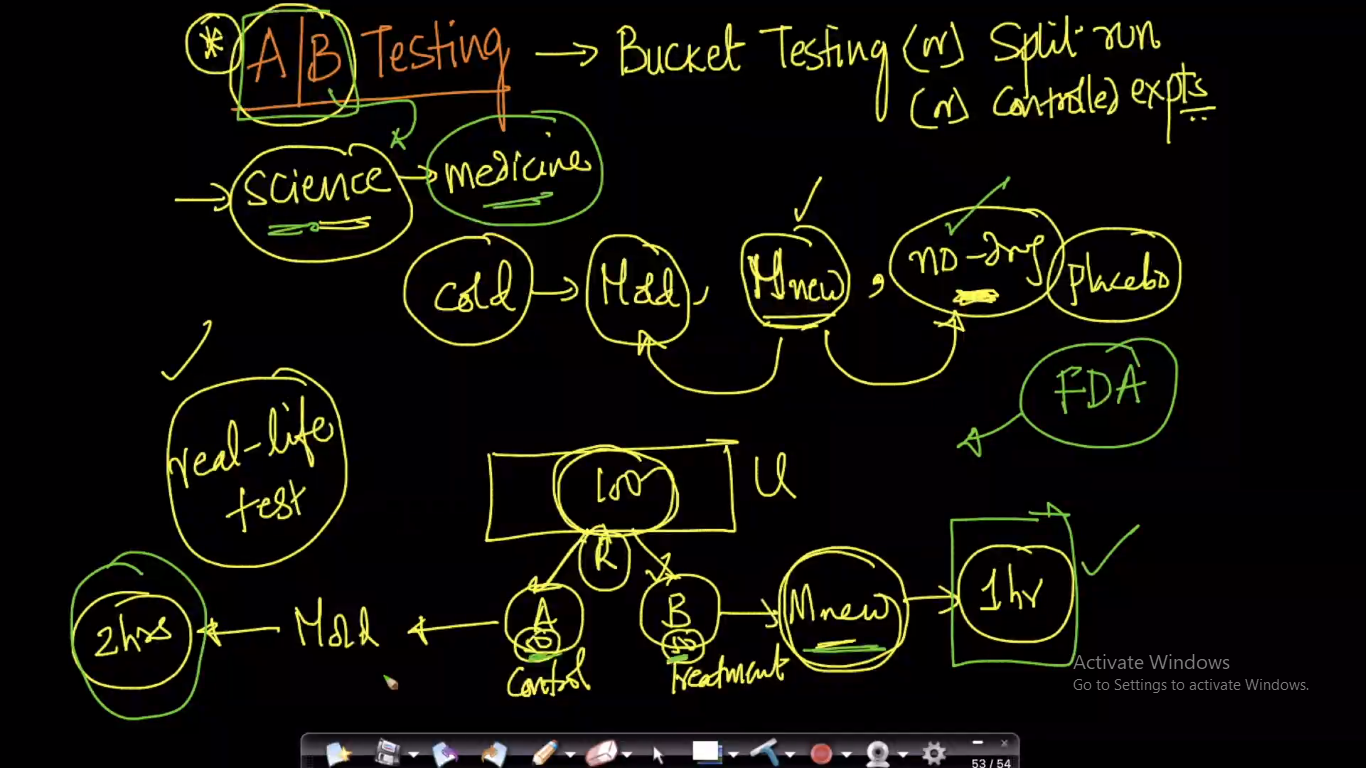 * A|B Testing → Bucket Testing (or) Split-run
(or) Controlled expts
→ science → medicine
cold → Mold, Mnew, no-drug placebo
FDA
real-life
test
100 U
R
2hrs ← Mold ← A B → Mnew → 1hr
Control Treatment
Activate Windows
Go to Settings to activate Windows.
53 / 54